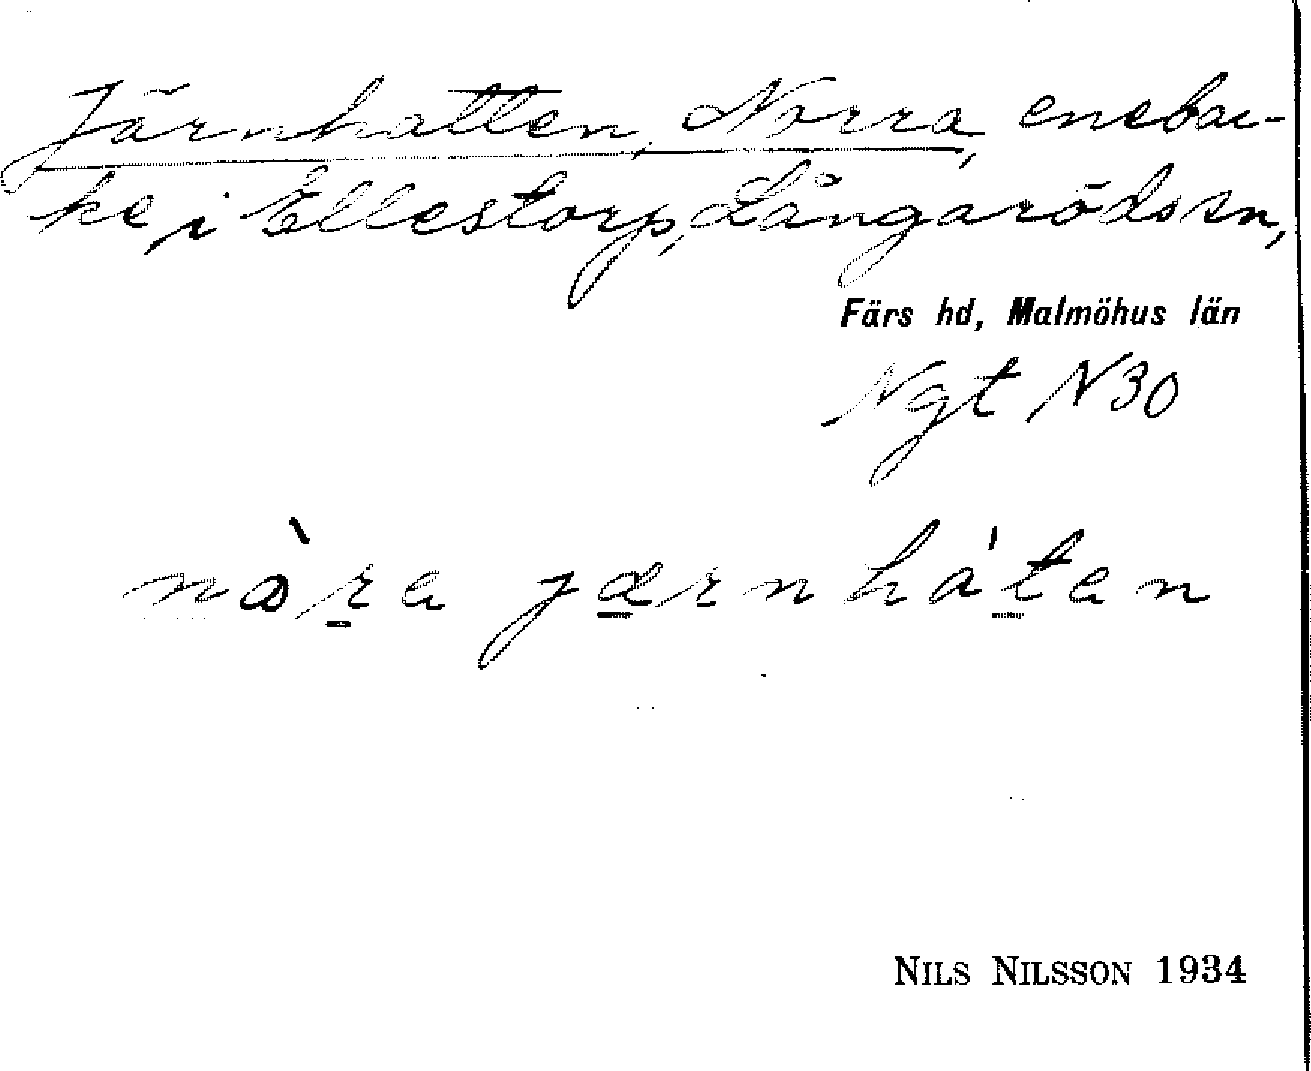 Järnhatten, Norra, enebac-
ke, i Ellestorp, Långaröds sn,
Färs hd, Malmöhus län
Ngt N30
nòra jærnháten
NILS NILSSON 1934